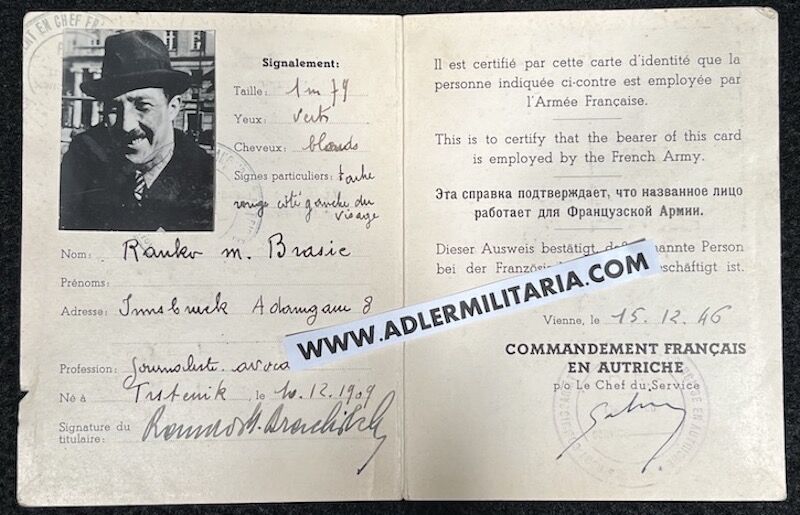 Signalement:
Taille: 1m79
Yeux: verts
Cheveux: blonds
Signes particuliers: tache
rouge côté gauche du
visage
Nom: Ranko M. Brasic
Prénoms:
Adresse: Innsbruck Adamgasse 8
Profession: journaliste avoca
Né à Trstenik, le 10.12.1909
Signature du
titulaire:
Il est certifié par cette carte d'identité que la
personne indiquée ci-contre est employée par
l'Armée Française.
This is to certify that the bearer of this card
is employed by the French Army.
Эта справка подтверждает, что названное лицо
работает для Французской Армии.
Dieser Ausweis bestätigt, daß nannte Person
bei der Französi eschäftigt ist.
WWW.ADLERMILITARIA.COM
Vienne, le 15.12.46
COMMANDEMENT FRANÇAIS
EN AUTRICHE
p/o Le Chef du Service